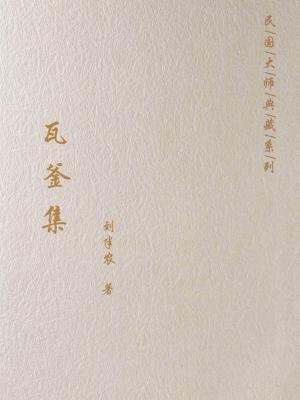 民国大师典藏系列
瓦釜集
刘半农 著